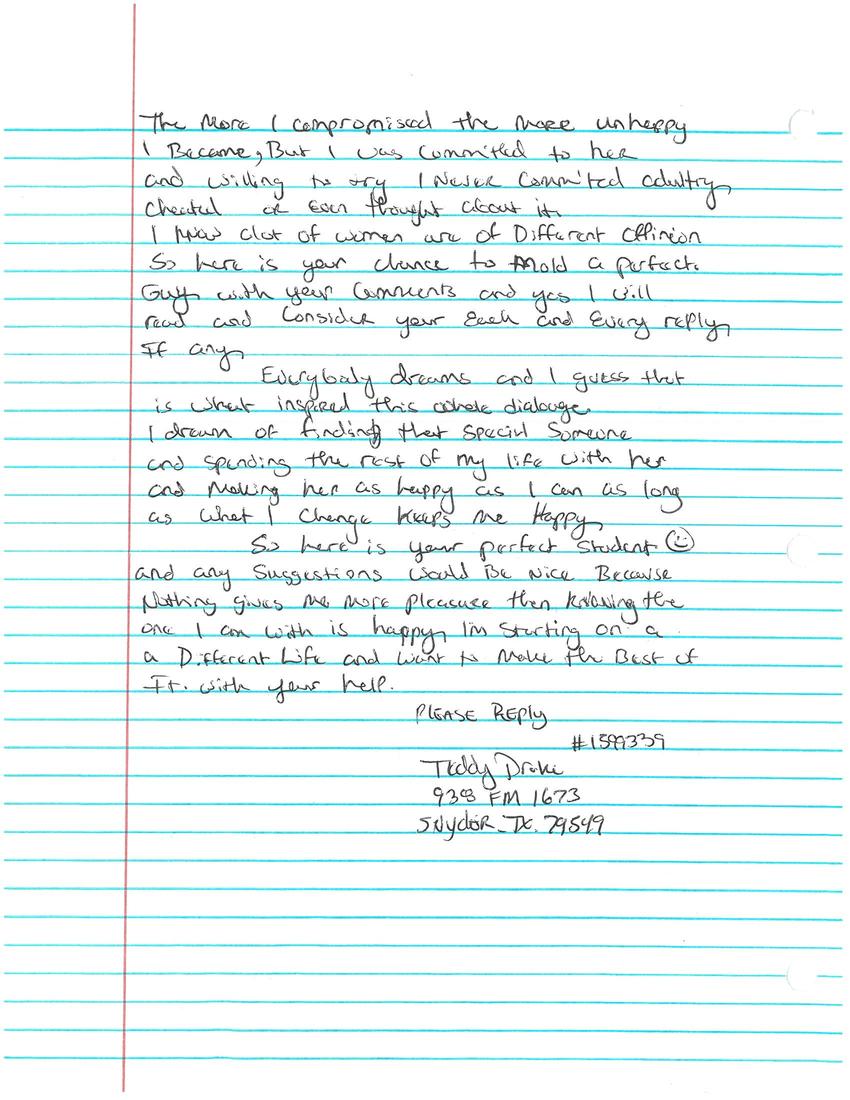 The More I compromised the more unhappy
I Became, But I was Committed to her
and willing to try I Never Commited adultry,
cheated or even thought about it.
I know alot of women are of Different Offinion
So here is your chance to Mold a perfect.
Guy with your Comments and yes I will
read and Consider your Each and Every reply,
If any,
Everybody dreams and I guess that
is what inspired this whole dialouge.
I dream of finding that special Someone
and spending the rest of my life with her
and Making her as happy as I can as long
as what I change keeps me Happy,
So here is your perfect Student ☺
and any Suggestions would Be Nice Because
Nothing gives me more pleasure then knowing the
one I am with is happy, I'm starting on a
a Different Life and want to Make the Best of
It. with your help.
PLEASE REPly
#1599339
Teddy Drake
938 FM 1673
SNydER, TX. 79549